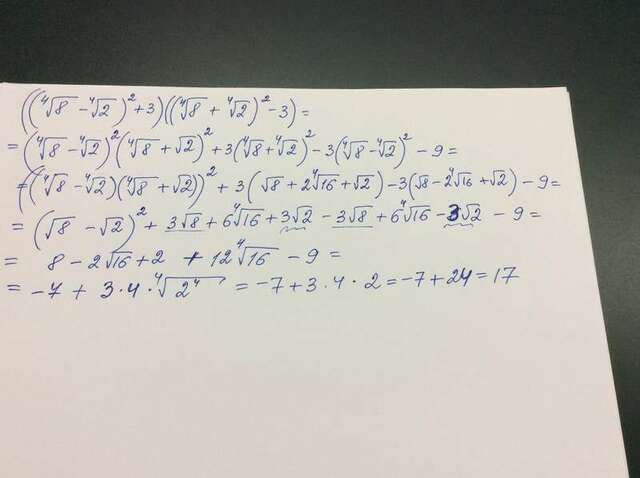 ((⁴√8 - ⁴√2)² + 3)((⁴√8 + ⁴√2)² - 3) =
= (⁴√8 - ⁴√2)²(⁴√8 + √2)² + 3(⁴√8 + ⁴√2)² - 3(⁴√8 - ⁴√2)² - 9 =
= ((⁴√8 - ⁴√2)(⁴√8 + √2))² + 3(√8 + 2⁴√16 + √2) - 3(√8 - 2⁴√16 + √2) - 9 =
= (√8 - √2)² + 3√8 + 6⁴√16 + 3√2 - 3√8 + 6⁴√16 - 3√2 - 9 =
= 8 - 2√16 + 2 + 12⁴√16 - 9 =
= -7 + 3·4·⁴√2⁴ = -7 + 3·4·2 = -7 + 24 = 17